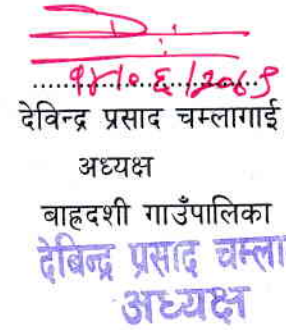 १४।०६।२०७९
देविन्द्र प्रसाद चम्लागाई
अध्यक्ष
बाह्रदशी गाउँपालिका
देबिन्द्र प्रसाद चम्ला
अध्यक्ष